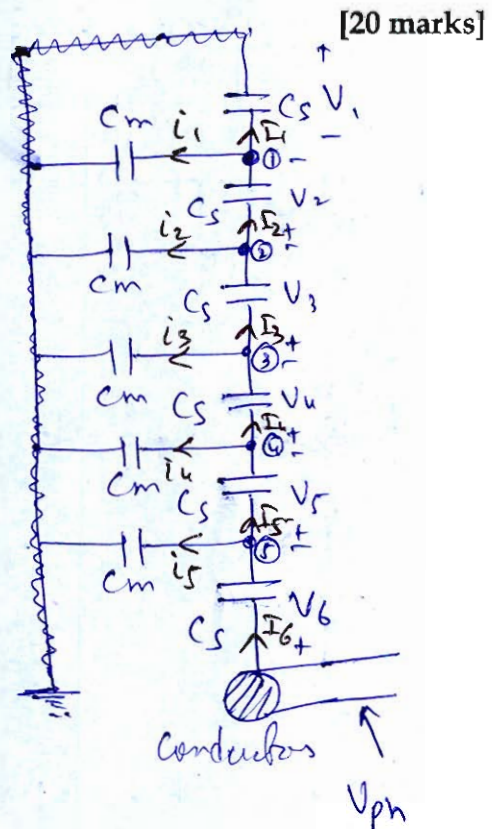 [20 marks]
Cs V1
+
-
Cm i1 I1 ① -
Cs V2
i2 I2 + ② -
Cm
Cs V3
i3 I3 + ③ -
Cm
Cs V4
I4 + ④ -
Cm i4
Cs V5
I5 + ⑤ -
Cm i5
Cs V6
I6 +
Conductors
Vph